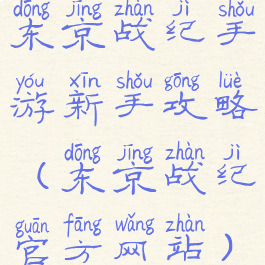 dōng jīng zhàn jì shǒu
东京战纪手
yóu xīn shǒu gōng lüè
游新手攻略
dōng jīng zhàn jì
（东京战纪
guān fāng wǎng zhàn
官方网站）